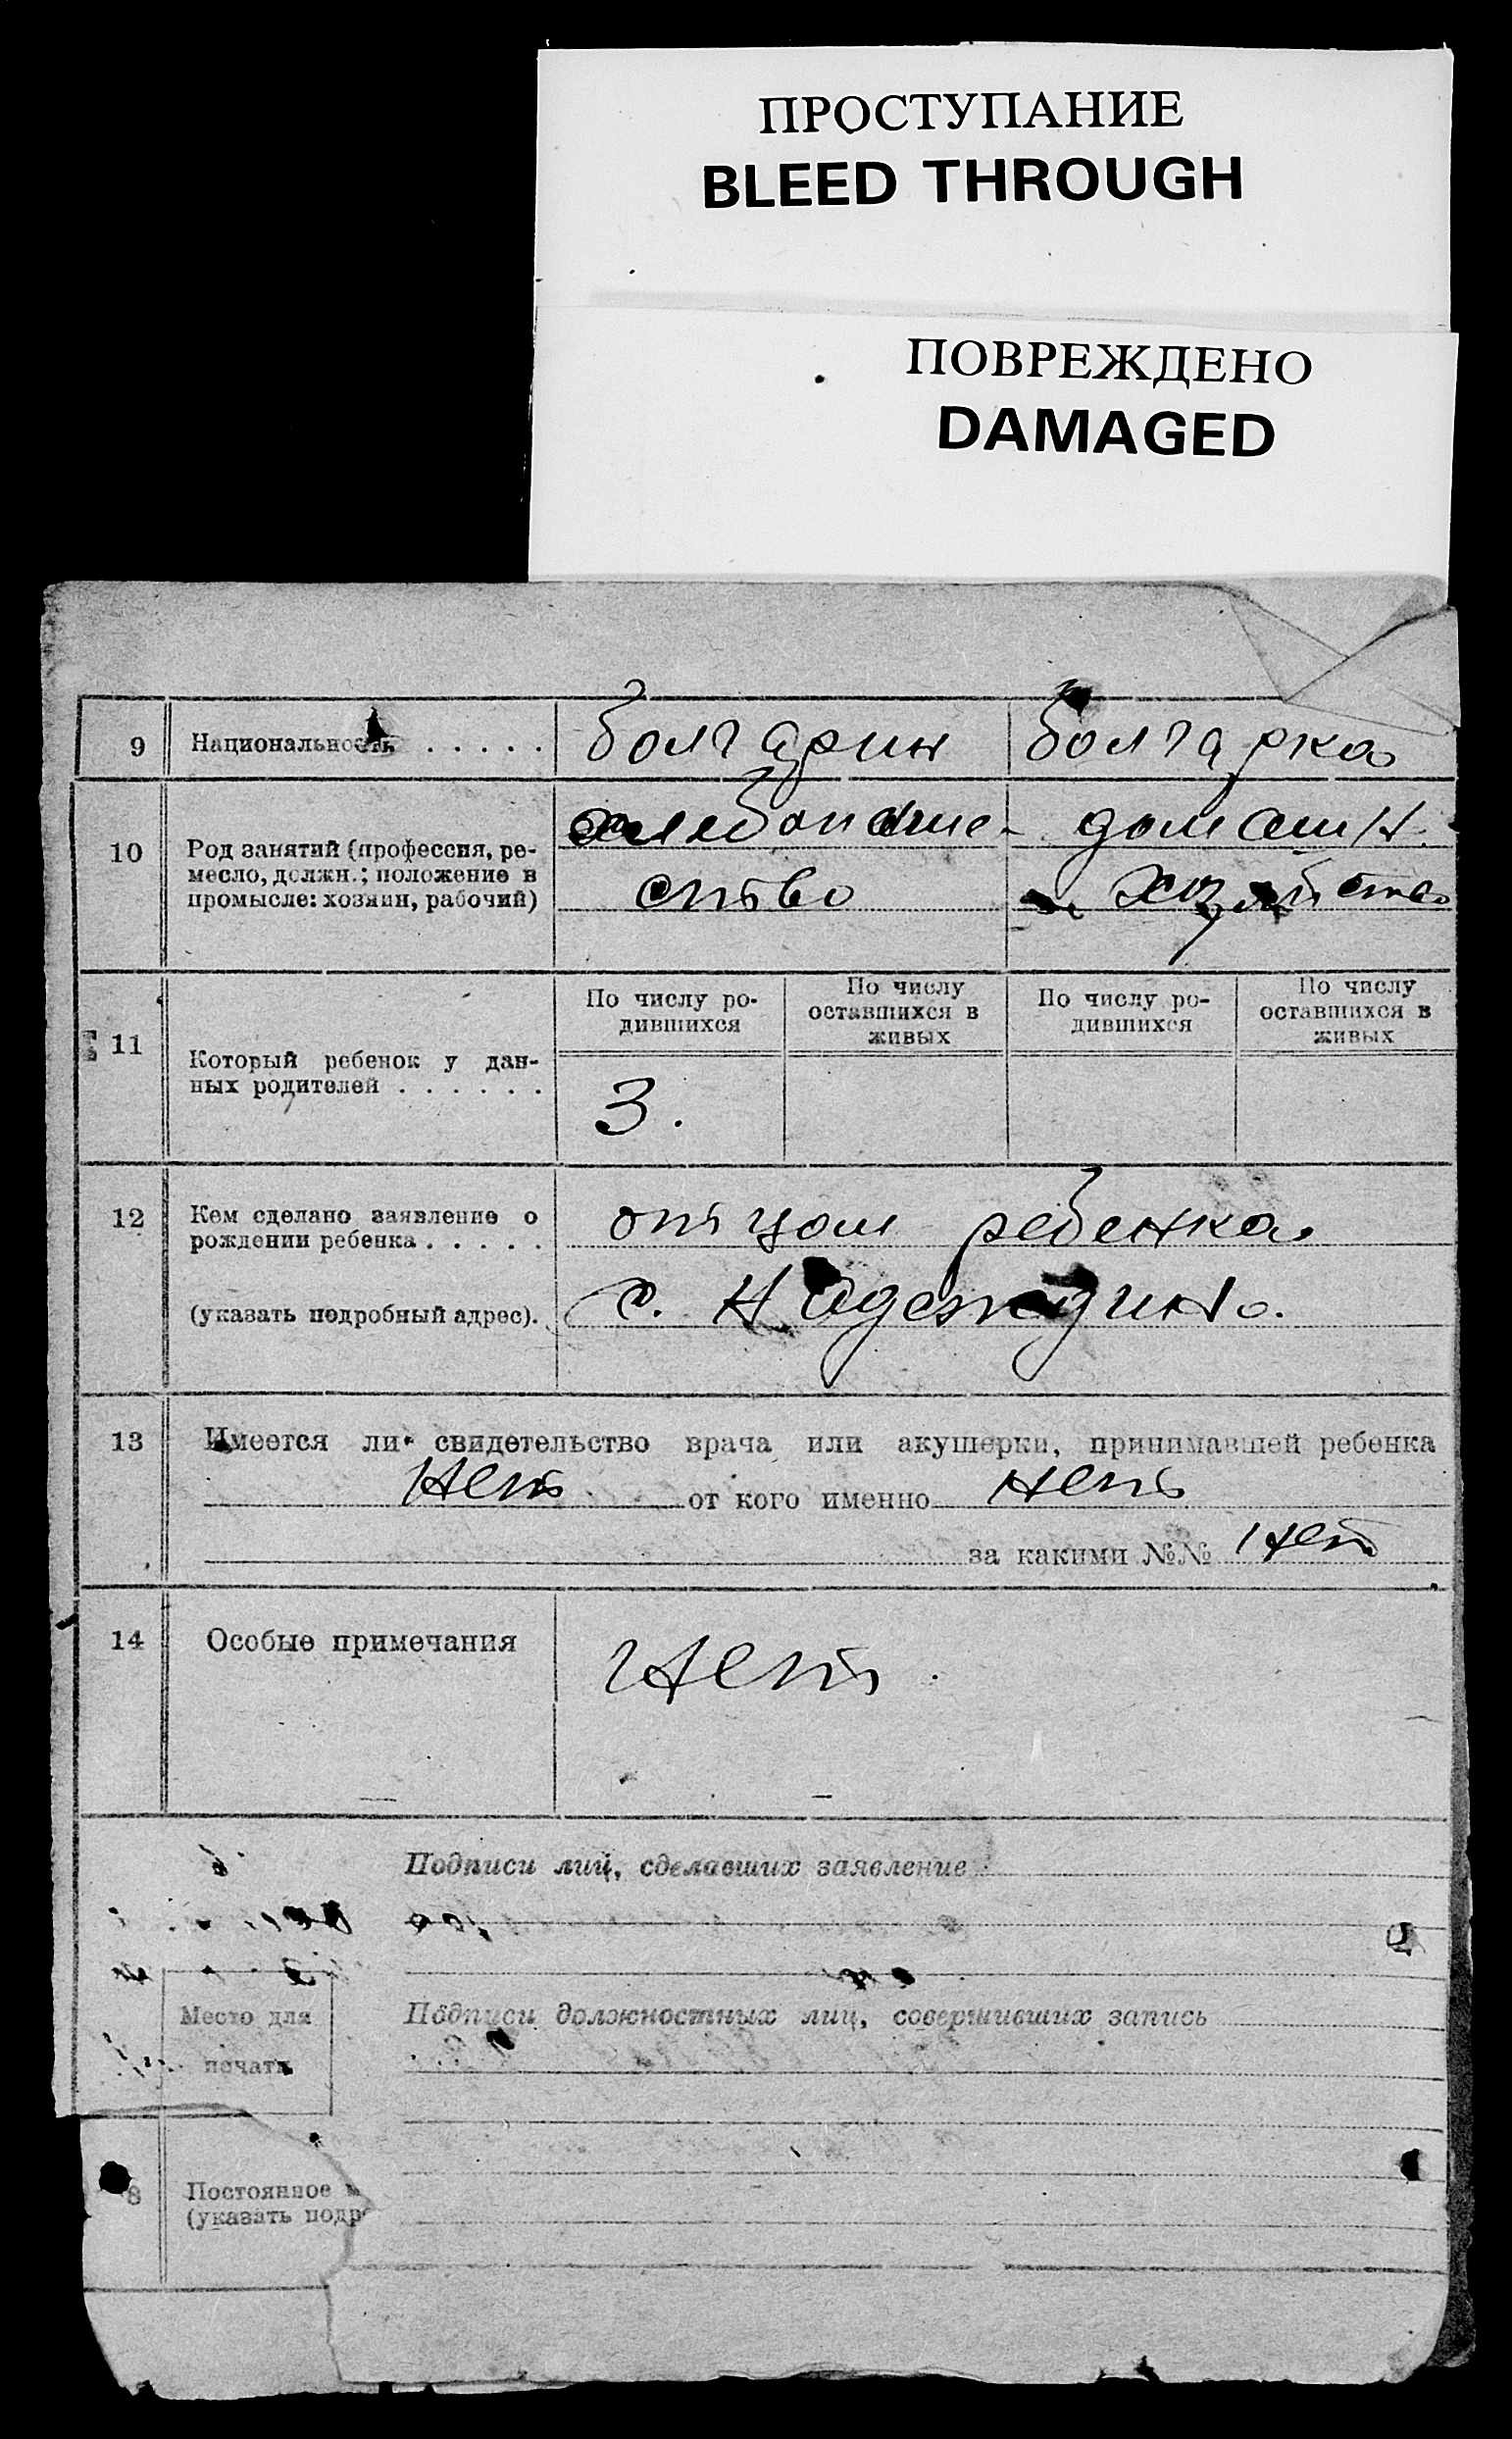 ПРОСТУПАНИЕ
BLEED THROUGH
ПОВРЕЖДЕНО
DAMAGED
9 Национальность . . . . . болгарин болгарка
10 Род занятий (профессия, ре-
месло, должн.; положение в
промысле: хозяин, рабочий)
хлебопаше-
ство
домашн.
хозяйство
11 Который ребенок у дан-
ных родителей . . . . . .
По числу ро-
дившихся
По числу
оставшихся в
живых
По числу ро-
дившихся
По числу
оставшихся в
живых
3.
12 Кем сделано заявление о
рождении ребенка . . . . .
(указать подробный адрес).
отцом ребенка
с. Надеждино.
13 Имеется ли свидетельство врача или акушерки, принимавшей ребенка
нет от кого именно нет
за какими №№ нет
14 Особые примечания нет.
Подписи лиц, сделавших заявление
Место для
печати
Подписи должностных лиц, совершивших запись
8 Постоянное
(указать подр